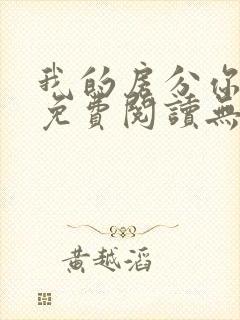 我的房分你
免費閱讀無
黃越滔